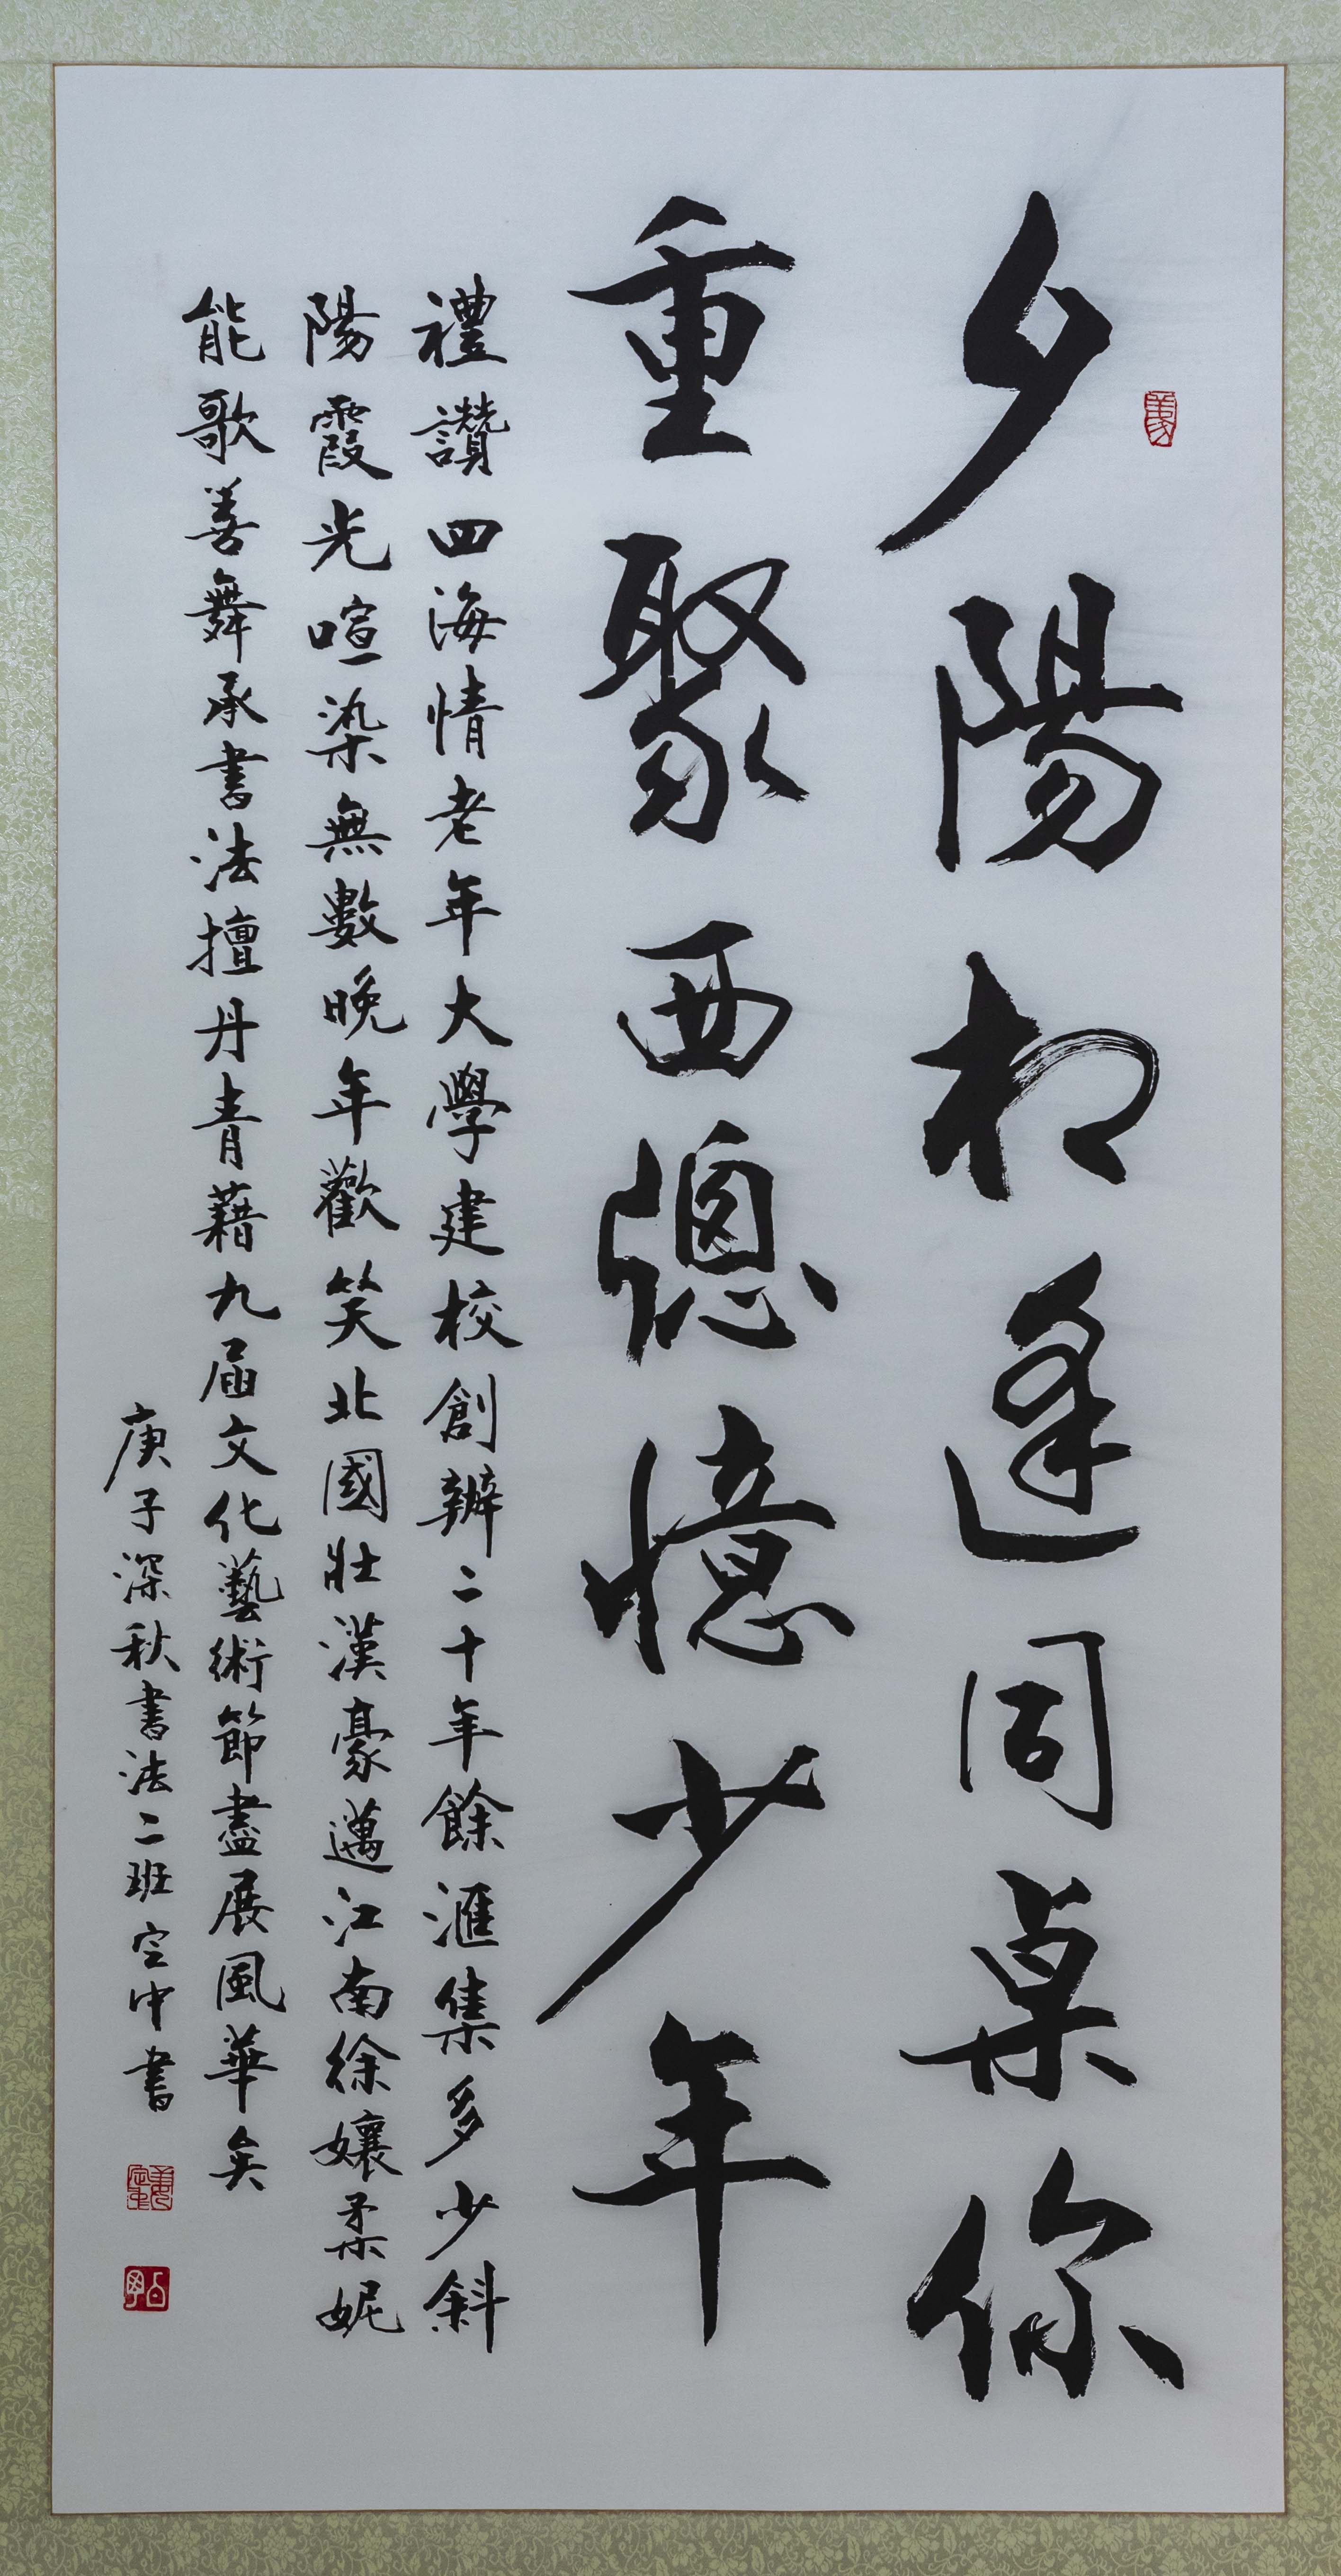 夕陽相逢同桌你
重聚西窗憶少年
禮讚四海情老年大學建校創辦二十年餘滙集多少斜
陽霞光喧染無數晚年歡笑北國壯漢豪邁江南徐孃柔妮
能歌善舞承書法擅丹青藉九屆文化藝術節盡展風華矣
庚子深秋書法二班空中書